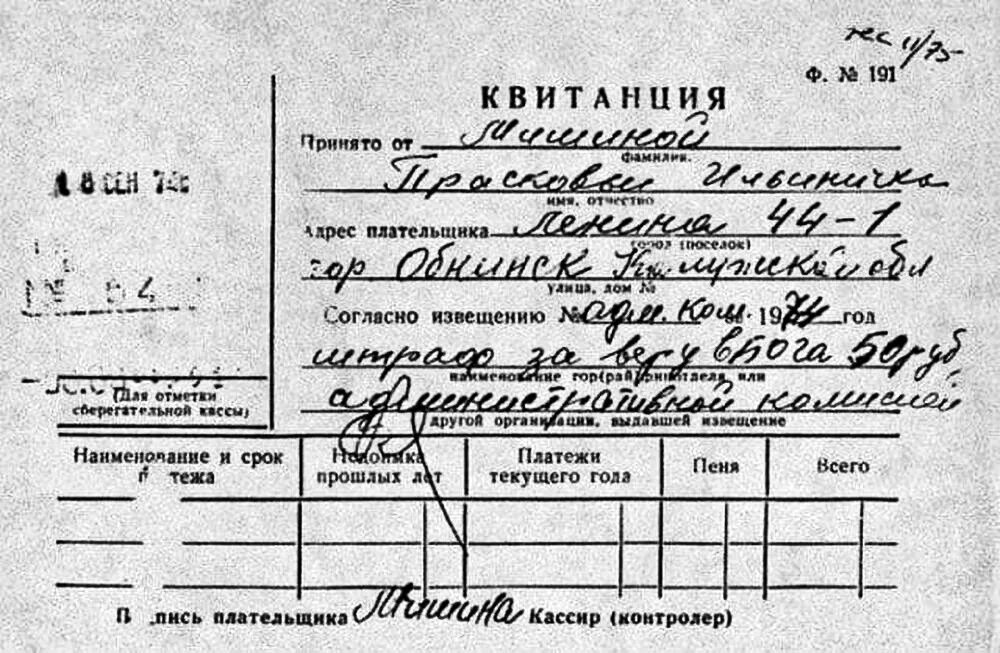 11/75
Ф. № 191
КВИТАНЦИЯ
Принято от Мишиной
фамилия,
Прасковьи Ильиничны
имя, отчество
Адрес плательщика Ленина 44-1
город (поселок)
гор Обнинск Калужской обл
улица, дом №
Согласно извещению № адм. ком. 1974 год
штраф за веру в Бога 50 руб
наименование гор(рай)финотдела или
административной комисией
другой организации, выдавшей извещение
18 СЕН 74
(Для отметки
сберегательной кассы)
Наименование и срок
тежа
Недоимка
прошлых лет
Платежи
текущего года
Пеня
Всего
П пись плательщика Мишина Кассир (контролер)